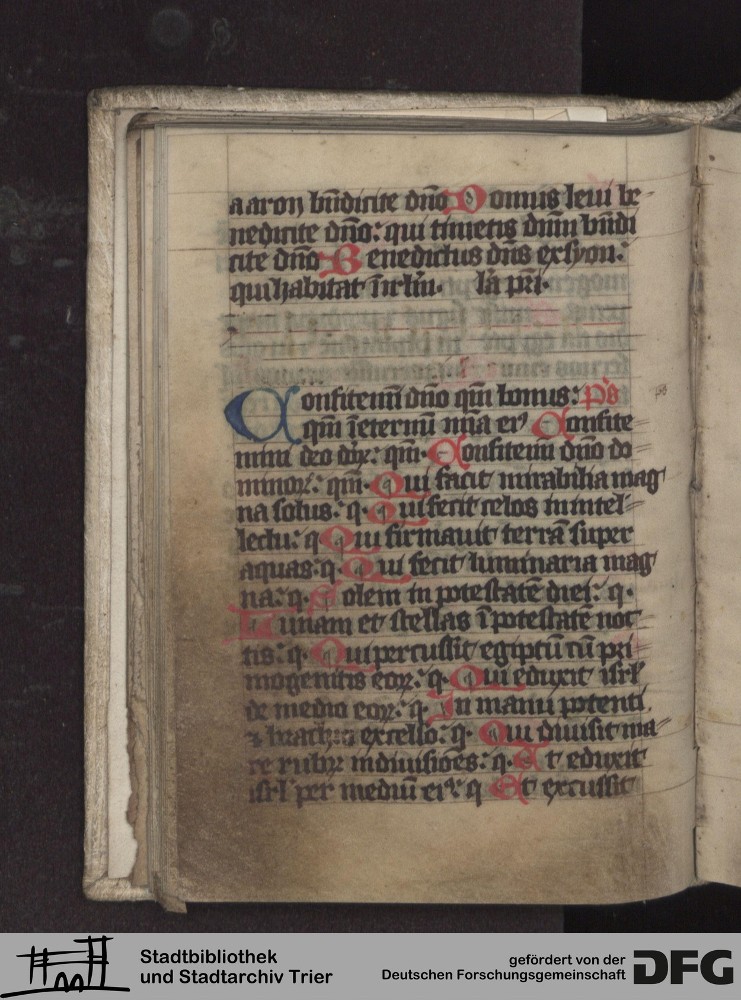 aaron bn̄dicite dn̄o Domus leui be-
nedicite dn̄o: qui timetis dnm̄ bn̄di
cite dn̄o Benedictus dn̄s ex syon:
qui habitat ī irlm̄. la pri.
Confitemī dn̄o qm̄ bonus: ps
qm̄ ī eternū mīa eiꝰ Confite
mini deo deoꝝ: qm̄. Confitemī dn̄o do
minoꝝ: qm̄. Qui facit mirabilia mag
na solus: q. Qui fecit celos in intel-
lectu: q Qui firmauit terrā super
aquas: q. Qui fecit luminaria mag
na: q. Solem in potestatē diei: q.
Lunam et stellas ī potestatē noc
tis: q. Qui percussit egiptū cū pri
mogenitis eoꝝ: q. Qui eduxit isrl
de medio eoꝝ: q. In manu potenti
⁊ brachio excelso: q. Qui diuisit ma-
re rubꝝ in diuisiōes: q. Et eduxit
isrl per mediū eiꝰ: q Et excussit
ps
Stadtbibliothek
und Stadtarchiv Trier
gefördert von der
Deutschen Forschungsgemeinschaft
DFG